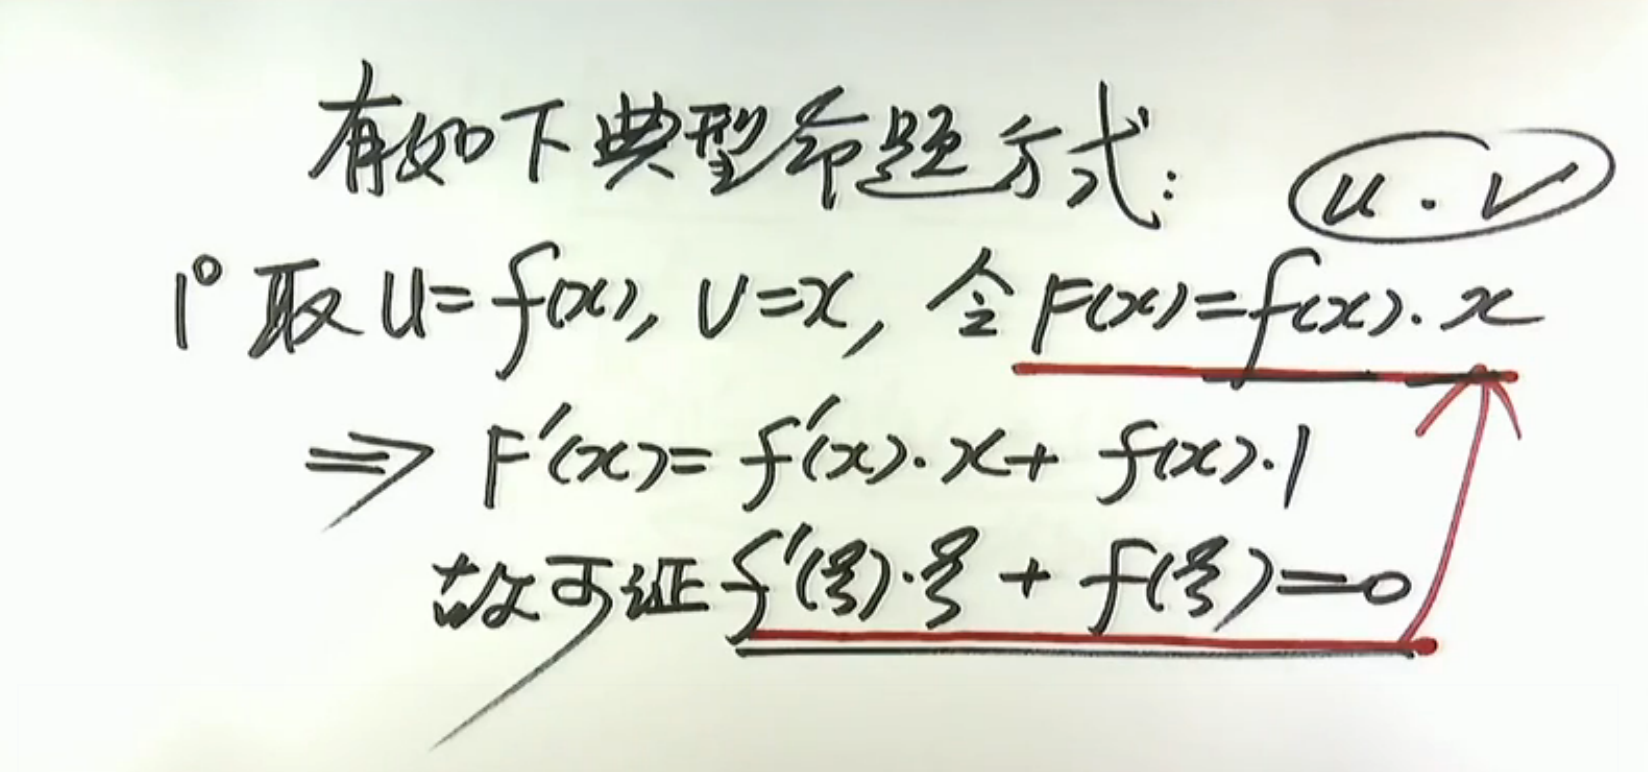 有如下典型命题方式:
u·v
1° 取 u=f(x), v=x, 令 F(x)=f(x)·x
⇒ F′(x)=f′(x)·x+f(x)·1
故可证 f′(ξ)·ξ+f(ξ)=0